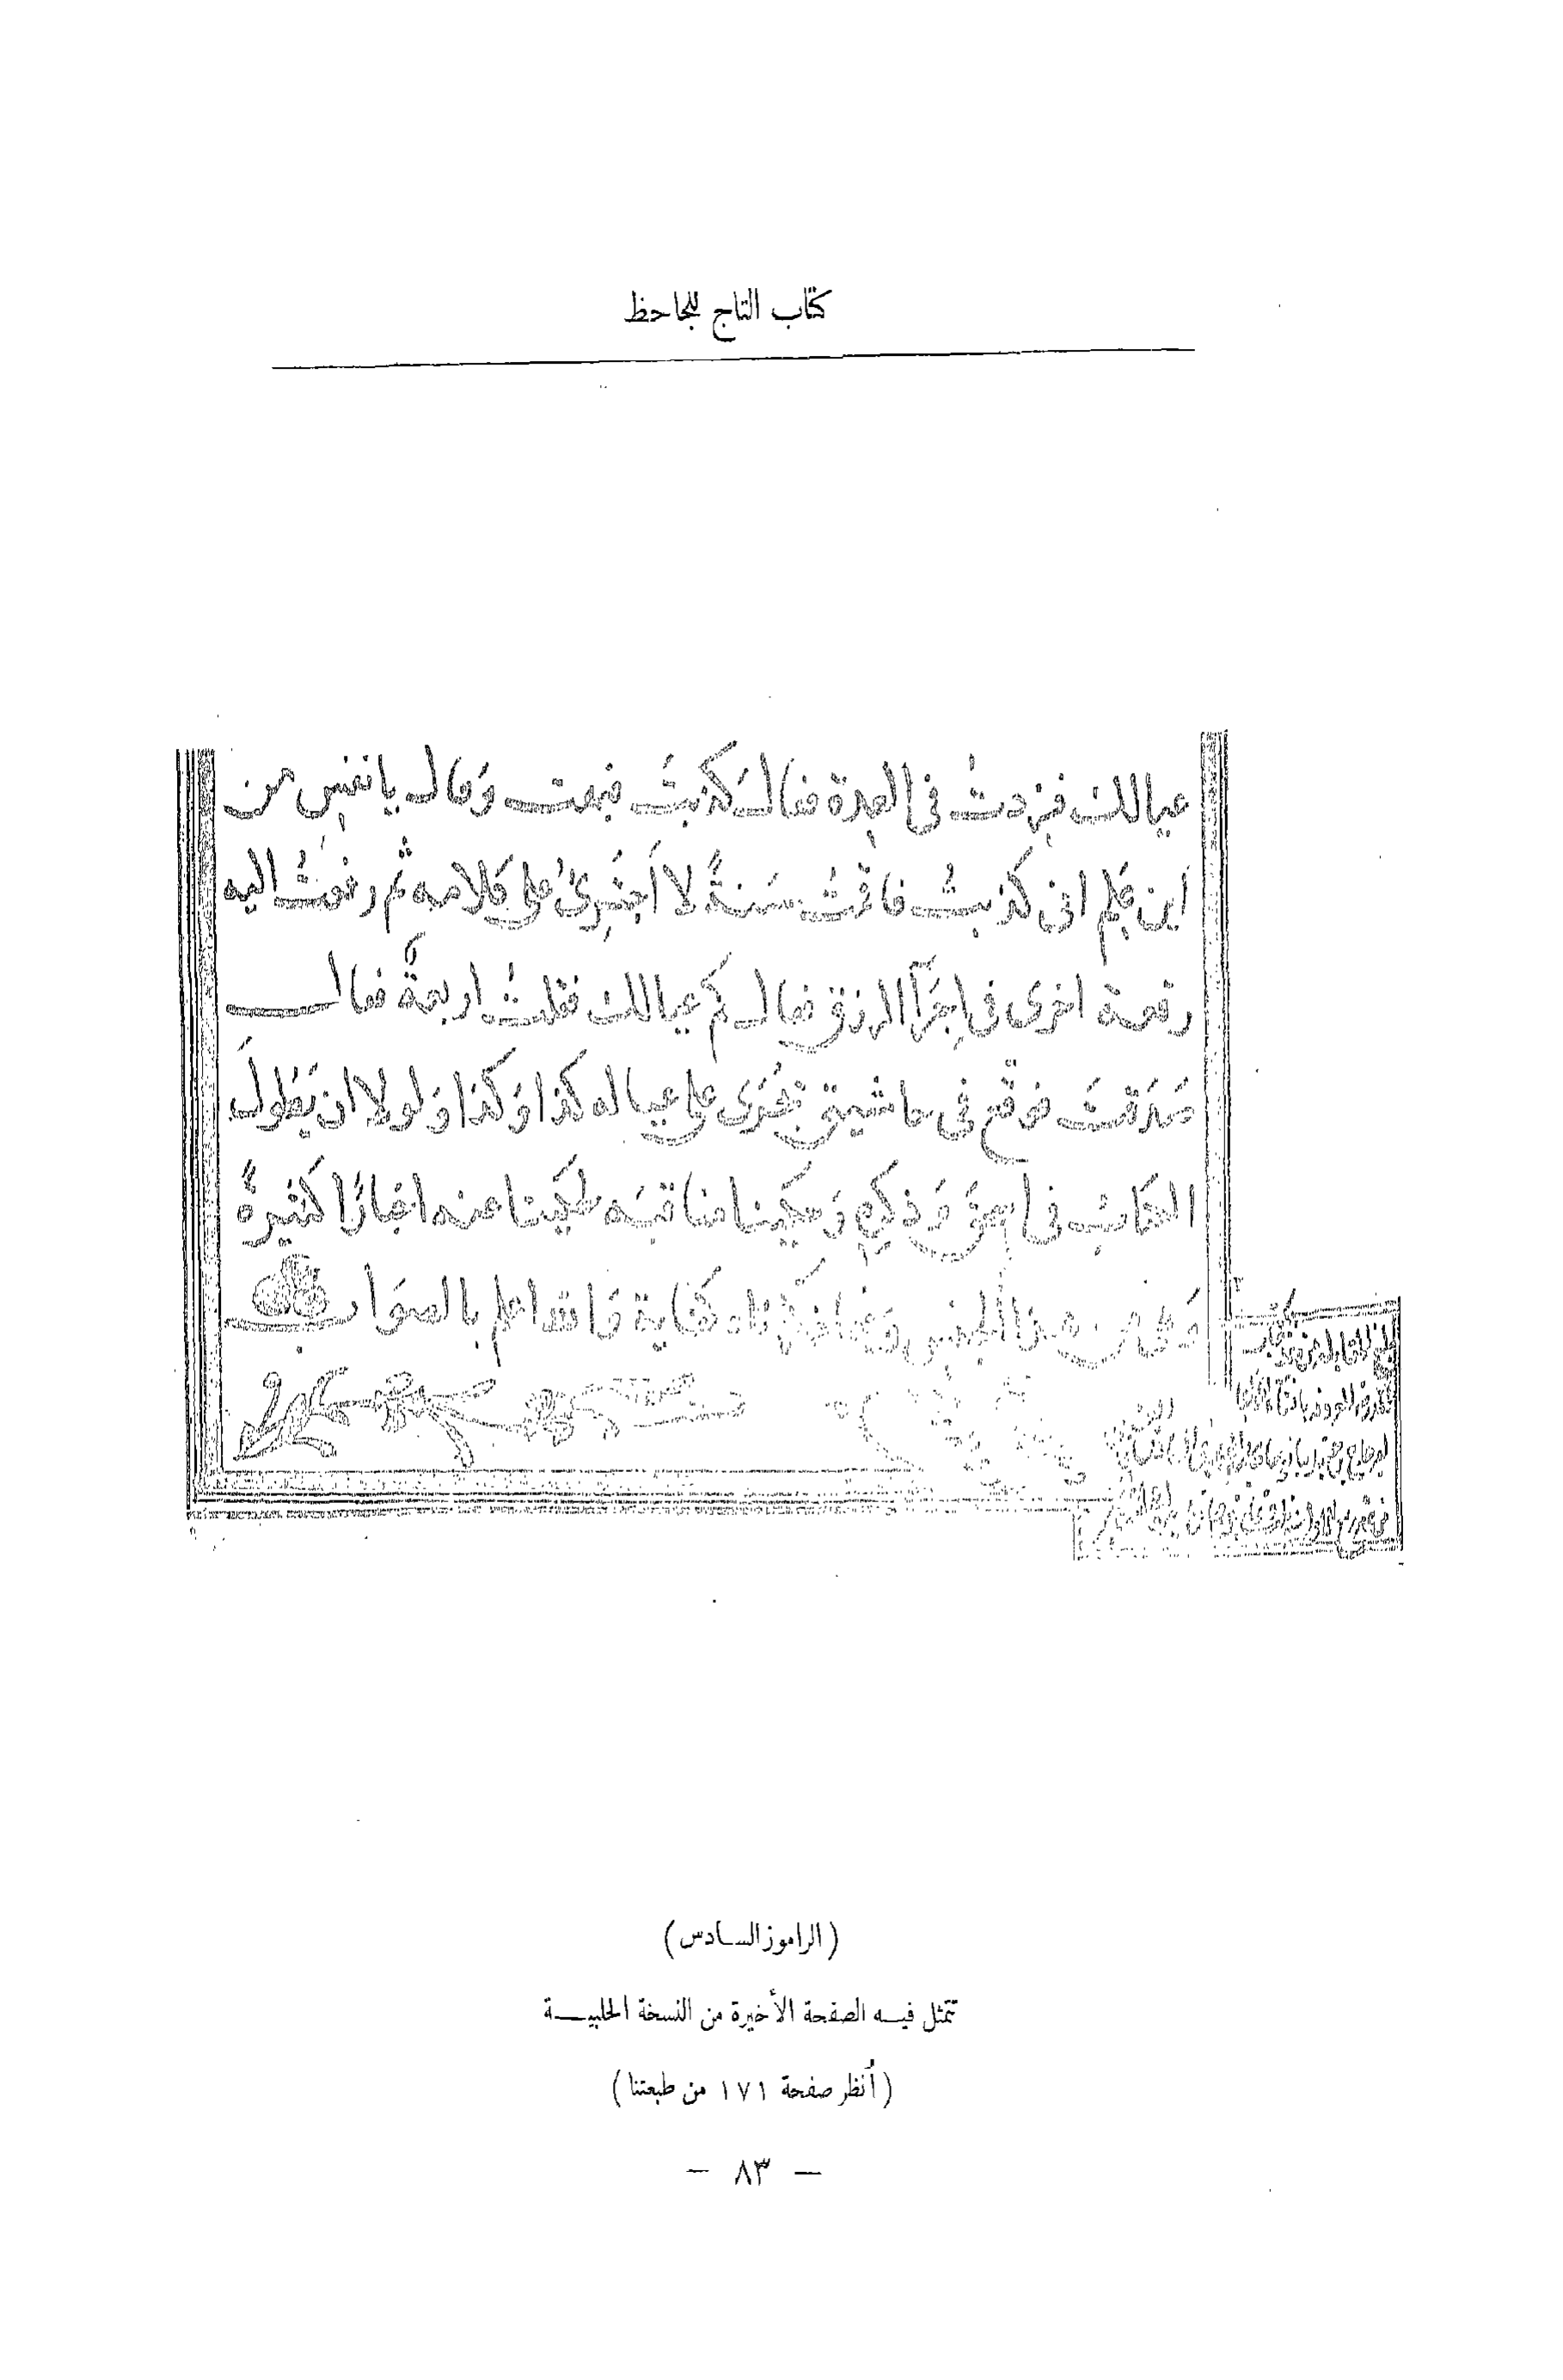 كتاب التاج للجاحظ
عيالك فزدت في العدة فقال كَذبتَ فبهت وَقال يا نفس من
اين علم انى كذبتُ فاقمتُ سَنةً لا أجترئُ على كلامه ثم رفعتُ اليه
رقعة اخرى في اجرَآ الرزق فقال كم عيالك فقلتُ اربعةٌ فقال
صَدَقتَ فوقع في حاشيتى تجرَى على عياله كذا وَكذا وَلولا ان يَطولَ
الكتابُ في اسحق وَذكره وَحكينا مناقبَه لحكينا عنه اخبارًا كثيرةً
من هذا الجنس وَفيما ذكرناه كفاية وَالله اعلم بالصوَاب
بلغ مقابلة
(الراموز السادس)
تتمثل فيه الصفحة الأخيرة من النسخة الحلبية
(أنظر صفحة ١٧١ من طبعتنا)
— ٨٣ —